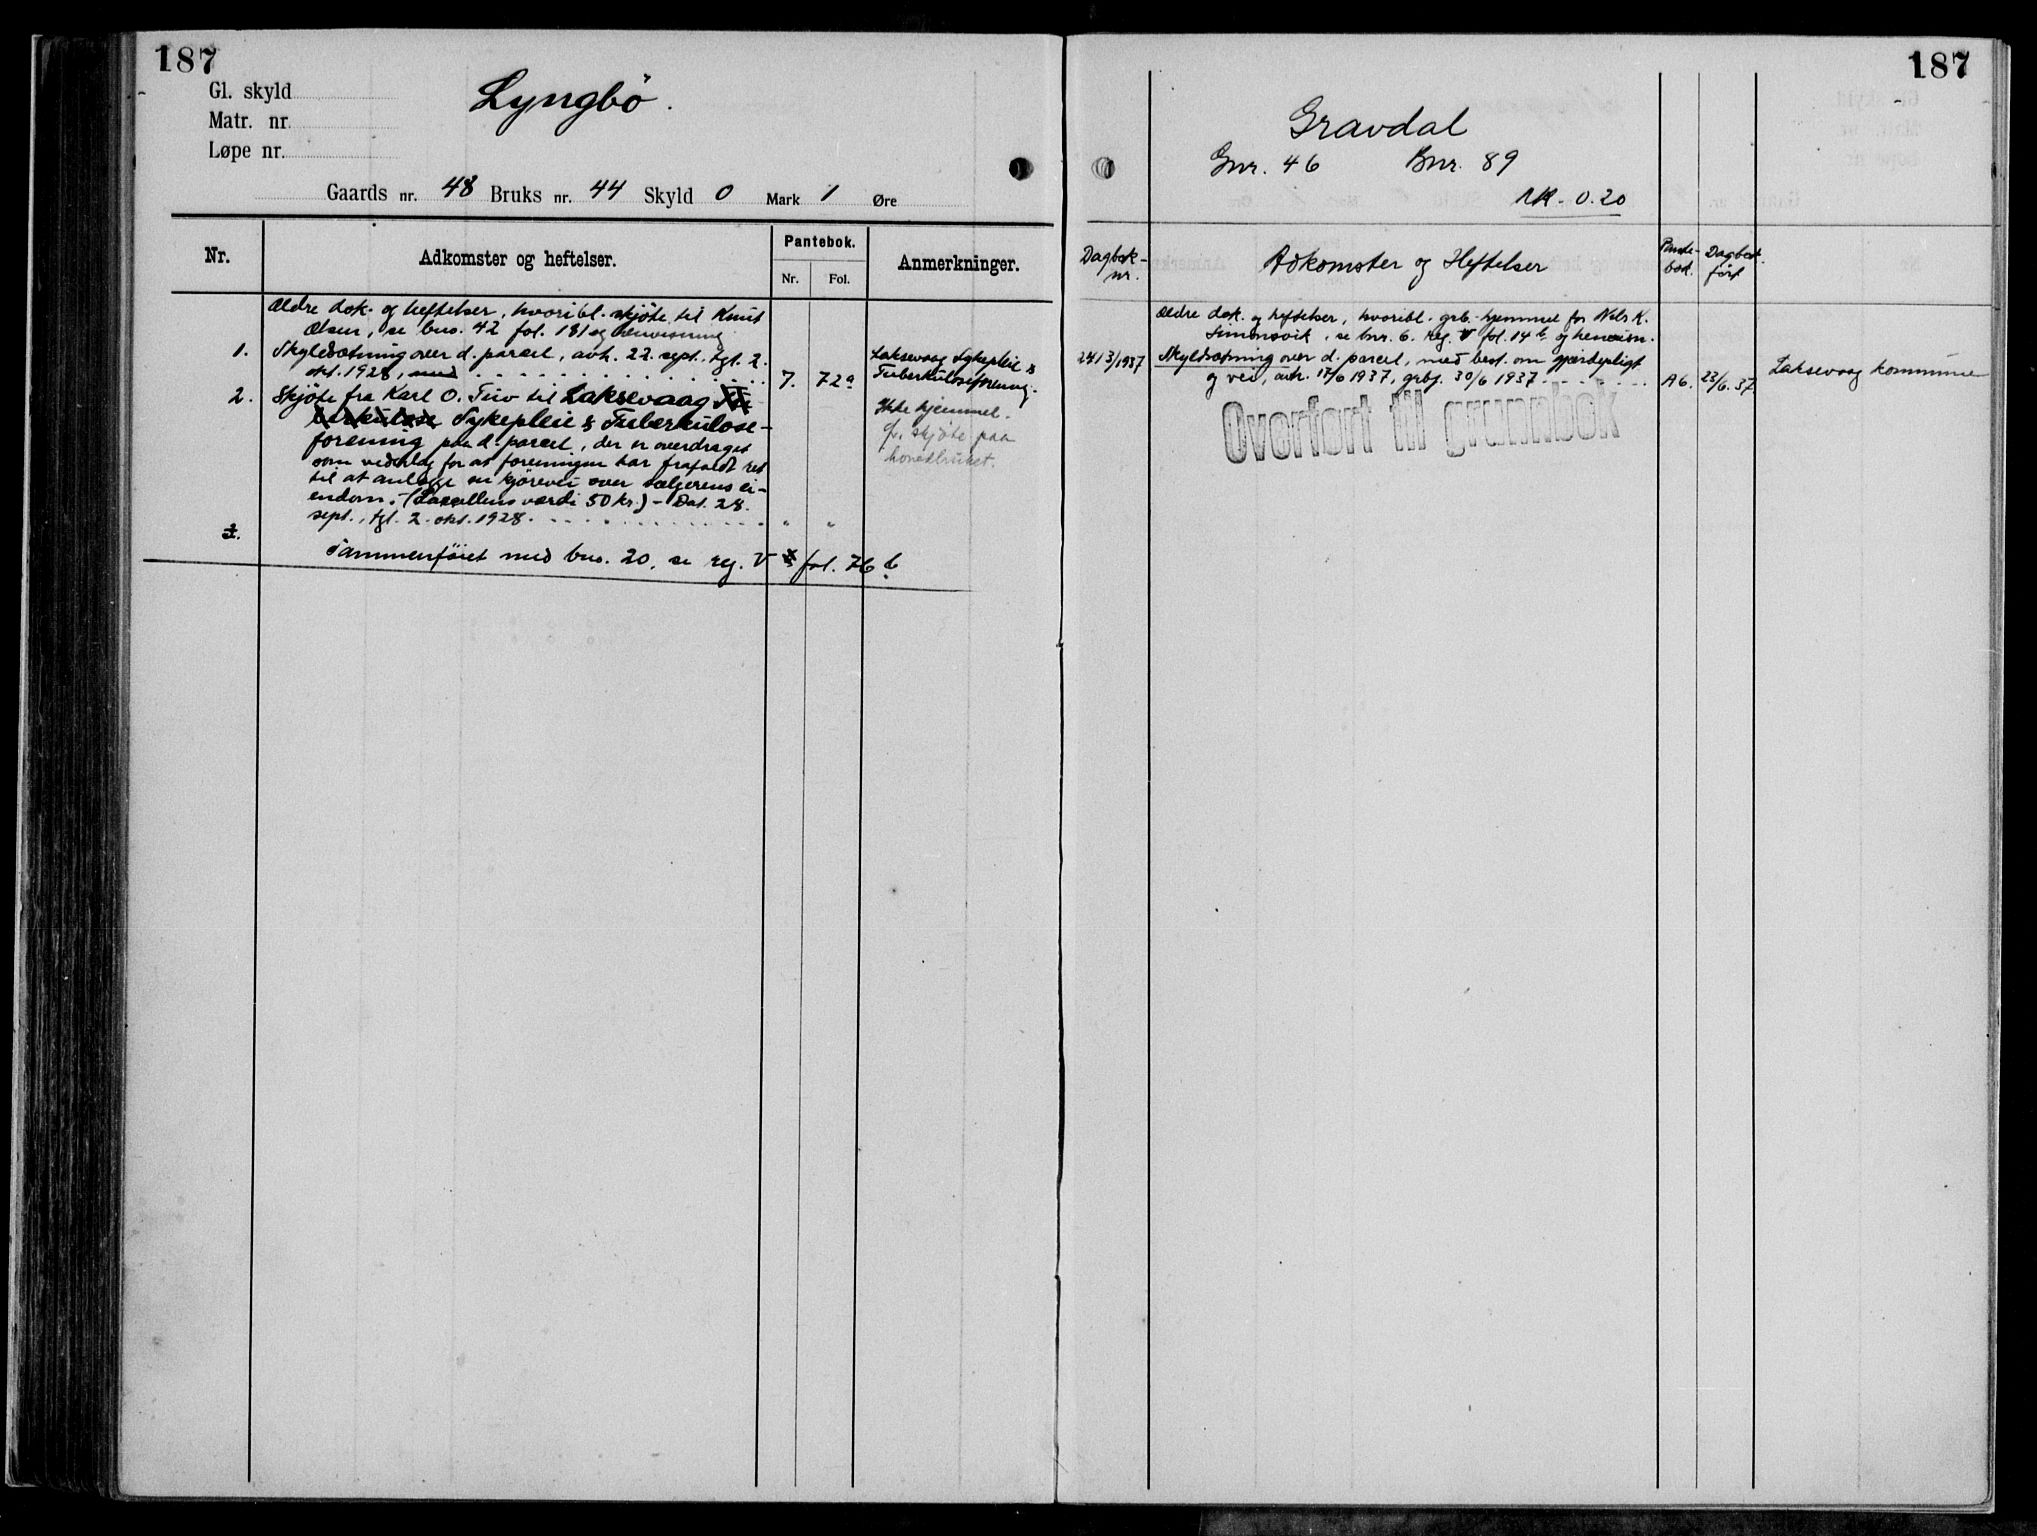 187
Gl. skyld
Matr. nr.
Løpe nr.
Lyngbö.
Gaards nr. 48 Bruks nr. 44 Skyld 0 Mark 1 Øre
Nr.
Adkomster og heftelser.
Pantebok.
Nr.
Fol.
Anmerkninger.
Ældre dok. og heftelser, hvoribl. skjöte til Knut
Olsen, se bno. 42 fol. 181 og henvisning
1. Skyldsætning over d. parcel, avh. 22. sept., tgl. 2.
okt. 1928, med 7. 72a
2. Skjöte fra Karl O. Tuv til Laksevaag Tu
berkulose Sykepleie & Tuberkulose-
forening paa d. parcel, der er overdraget
som vederlag for at foreningen har frafaldt ret
til at anlægge en kjörevei over sælgerens ei-
endom. - (Parcellens værdi 50 kr.) - Dat. 28.
sept., tgl. 2. okt. 1928. " "
3.
Sammenföiet med bno. 20, se reg. V fol. 76 b
Laksevaag Sykepleie &
Tuberkuloseforening.
Ikke hjemmel.
fr. skjöte paa
hovedbruket.
187
Gravdal
Gnr. 46 Bnr. 89
Mk. 0.20
Dagbok-
nr.
Adkomster og Heftelser
Pante-
bok.
Dagbok-
ført
Ældre dok. og heftelser, hvoribl. grb. hjemmel for Nels K.
Simonsvik, se bnr. 6. reg. V fol. 14 b og henvisn.
2413/1937 Skyldsætning over d. parcel, med best. om gjærdepligt
og vei, avh. 17/6 1937, grbf. 30/6 1937. A6. 23/6.37.
Laksevaag kommune
Overført til grunnbok